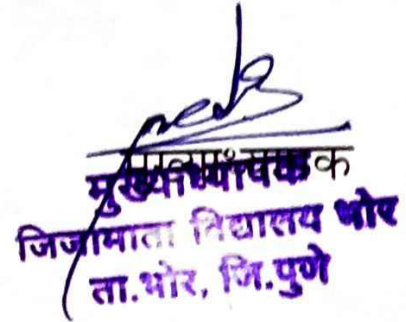 मुख्याध्यापक
मुख्याध्यापक
जिजामाता विद्यालय भोर
ता.भोर, जि.पुणे